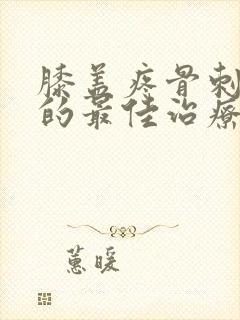 膝盖疼骨刺
的最佳治疗
蕙暖